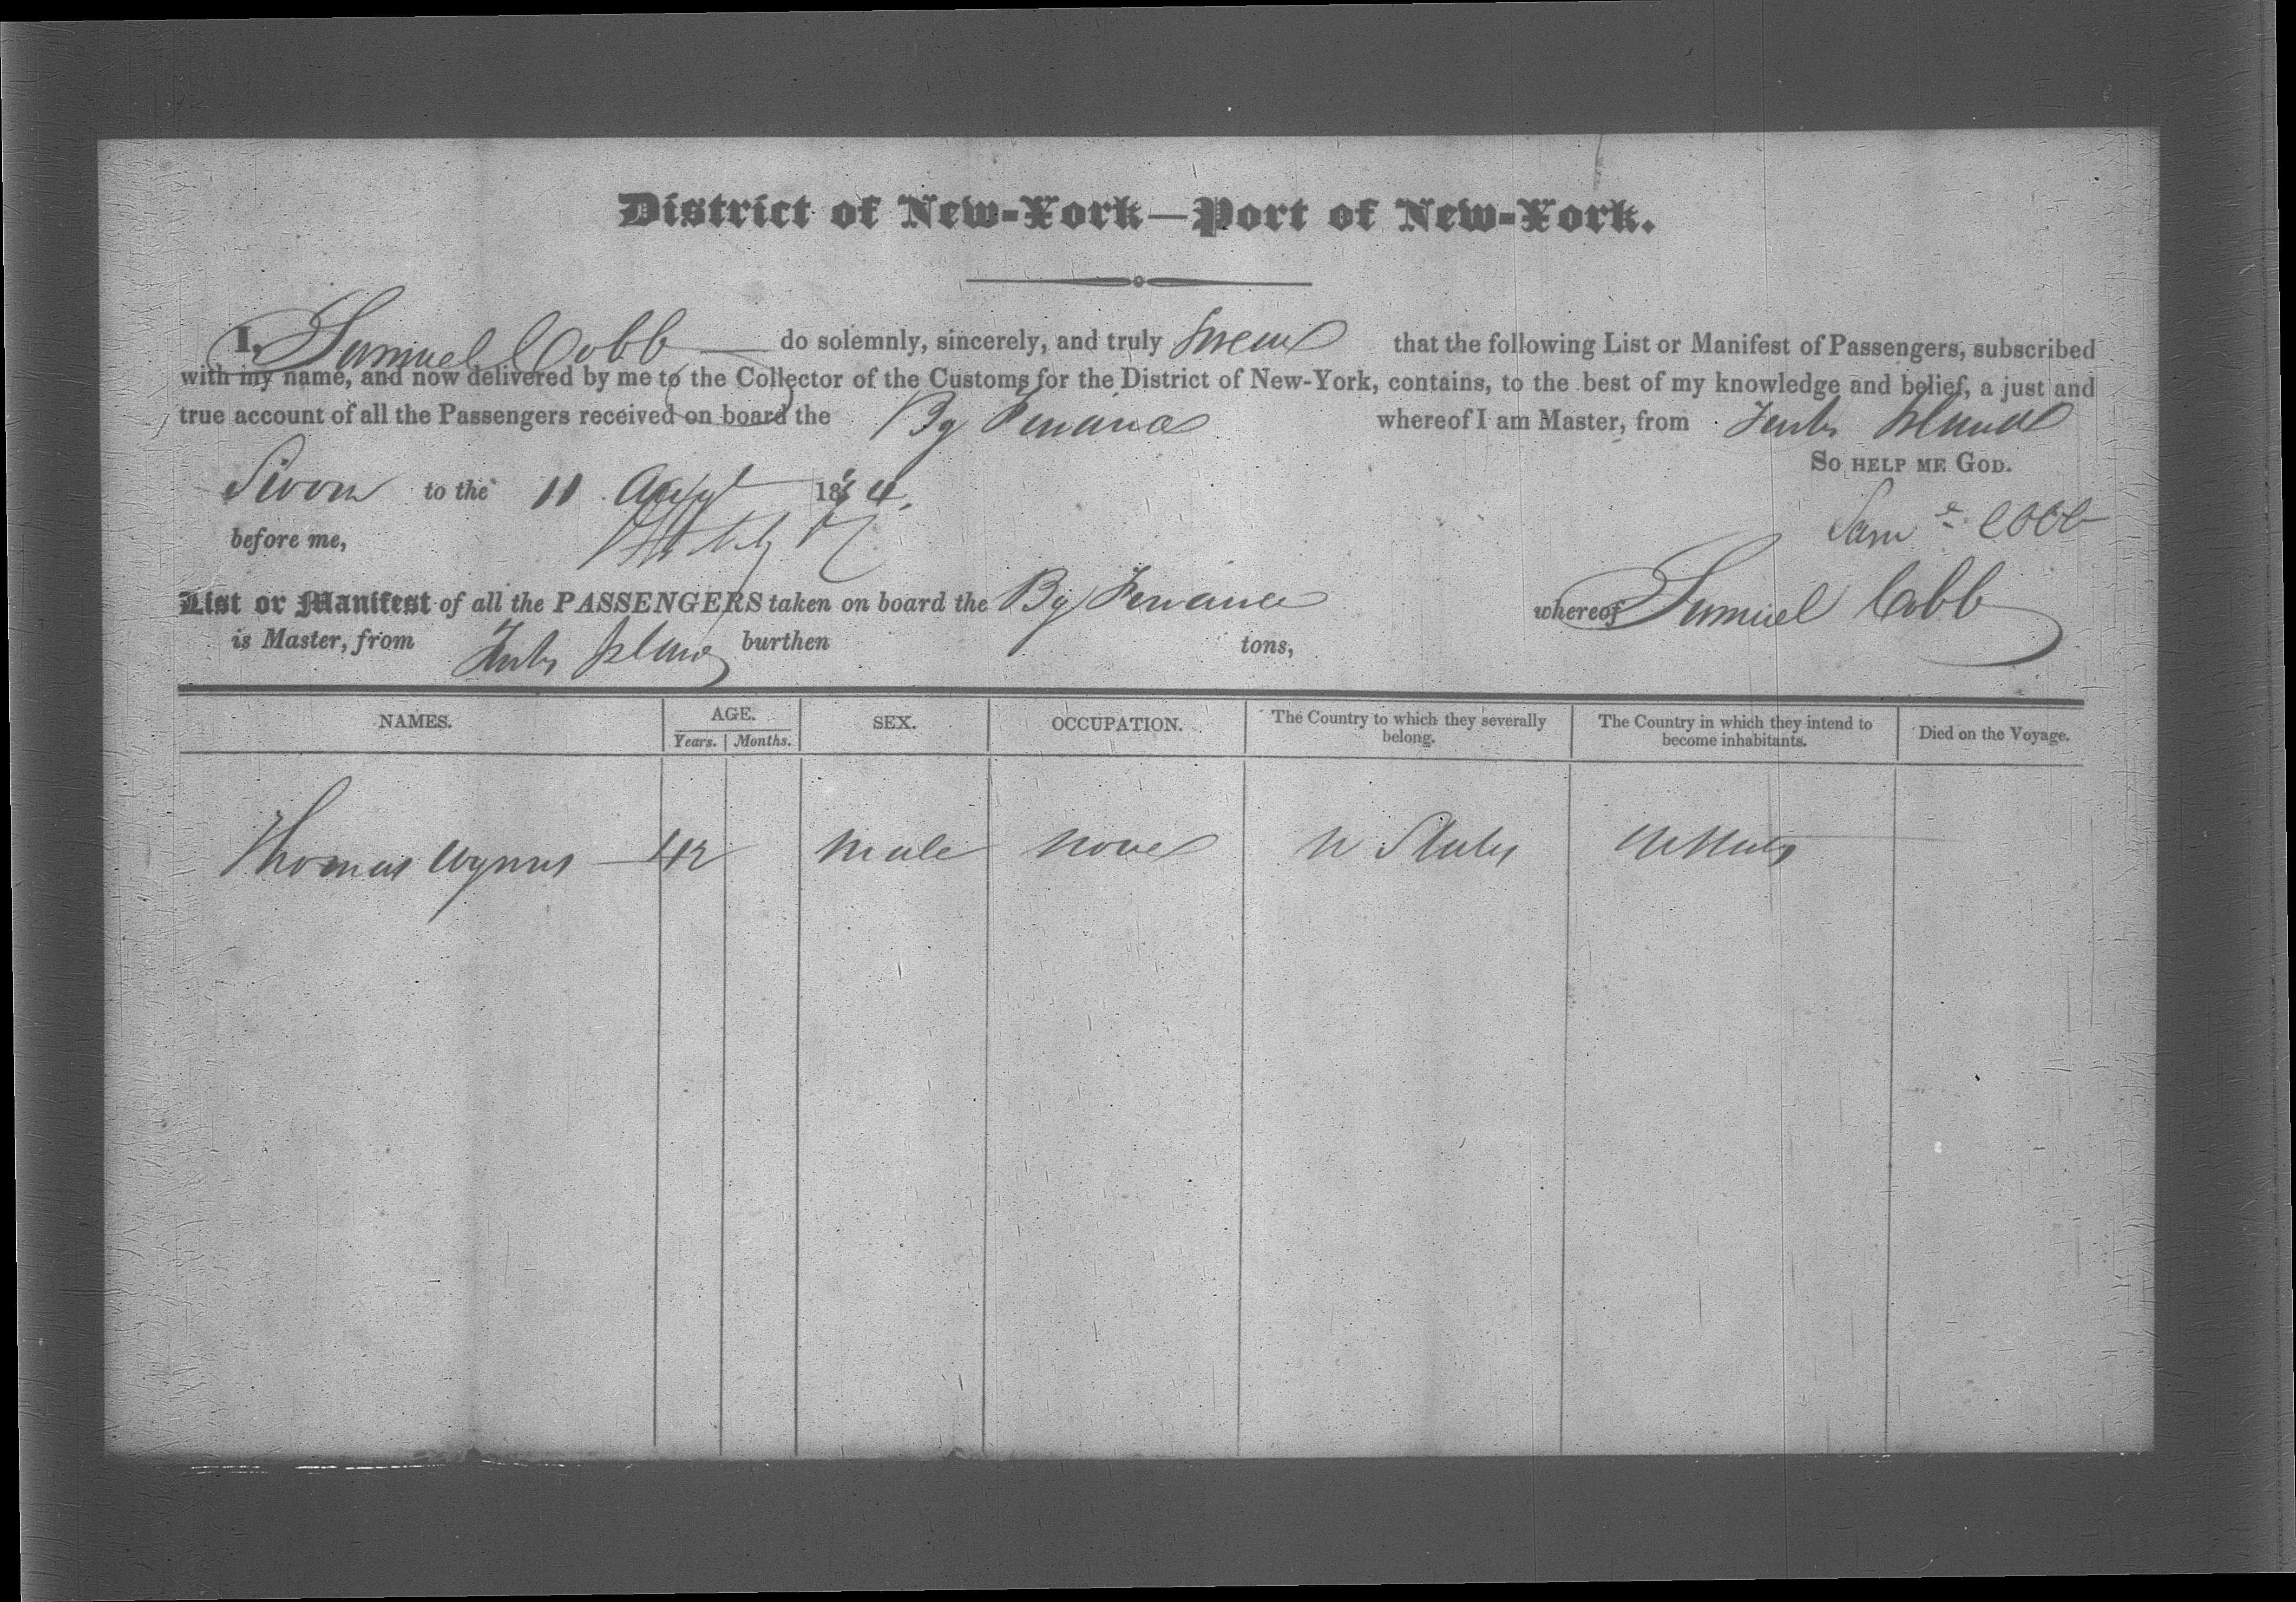 District of New-York—Port of New-York.
I, Samuel Cobb — do solemnly, sincerely, and truly Swear that the following List or Manifest of Passengers, subscribed
with my name, and now delivered by me to the Collector of the Customs for the District of New-York, contains, to the best of my knowledge and belief, a just and
true account of all the Passengers received on board the Bg whereof I am Master, from Turks Island
So help me God.
Sworn to the 11 Augt 18
before me,
Saml Cobb
List or Manifest of all the PASSENGERS taken on board the Bg whereof Samuel Cobb
is Master, from Turks Island burthen tons,
NAMES. AGE. SEX. OCCUPATION. The Country to which they severally belong. The Country in which they intend to become inhabitants. Died on the Voyage.
Years. Months.
Thomas Wynns — 42 male none U States U States